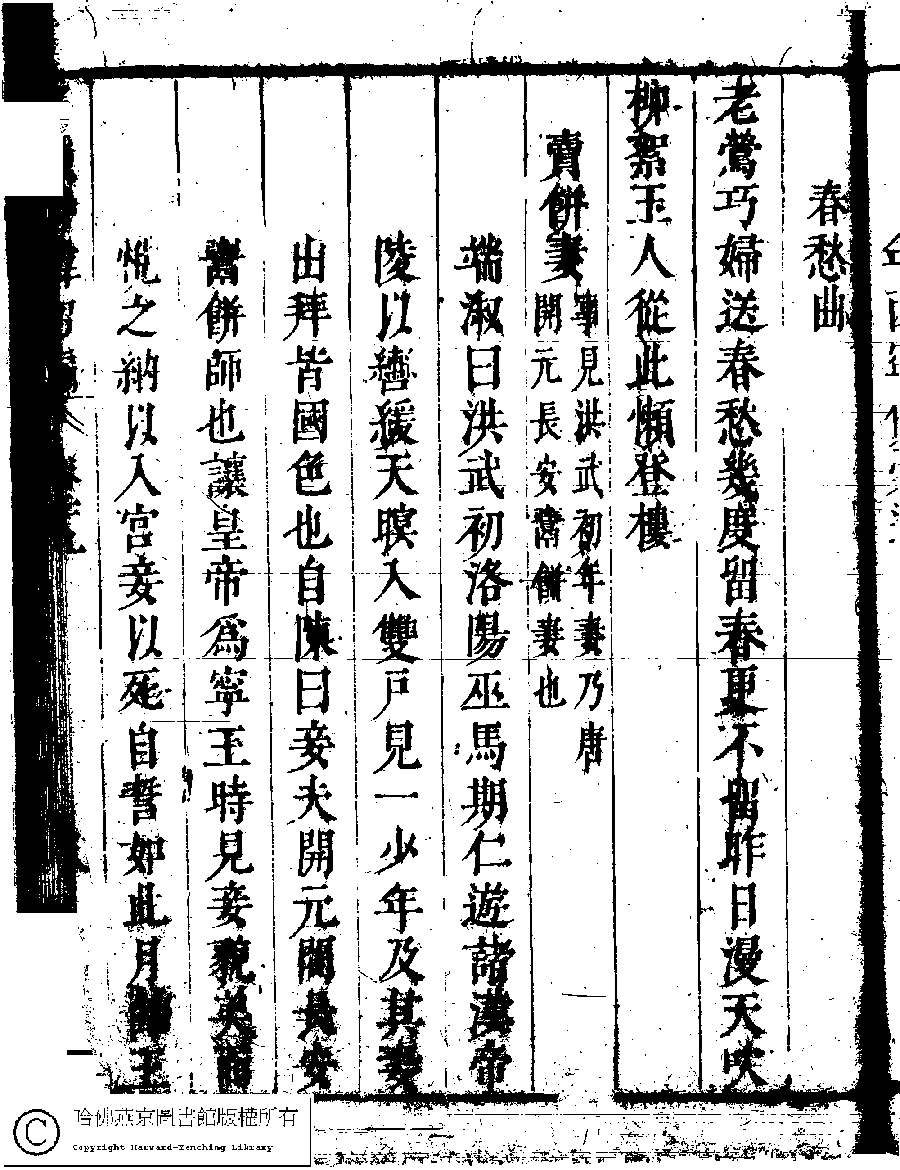 春愁曲
老鶯巧婦送春愁幾度留春更不留昨日漫天吹
柳絮玉人從此懶登樓
賣餅妻
事見洪武初年妻乃唐
開元長安鬻餅妻也
端淑曰洪武初洛陽巫馬期仁遊諸漢帝
陵以紆緩天暝入雙戶見一少年及其妻
出拜皆國色也自陳曰妾夫開元間長安
鬻餅師也讓皇帝為寧王時見妾貌美而
悅之納以入宮妾以死自誓如此月餘王
哈佛燕京圖書館版權所有
Copyright Harvard-Yenching Library